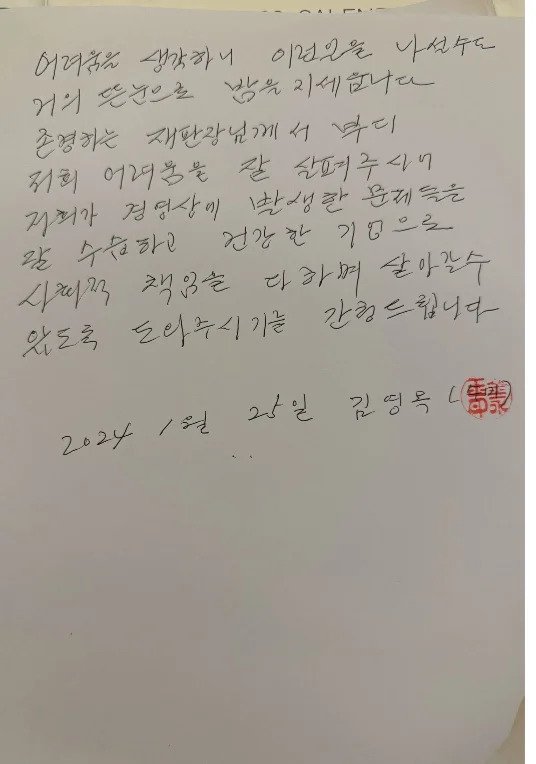 CALEND
어려움을 생각하니 이런일을 나선수도
거의 뜬눈으로 밤을 지세웁니다
존경하는 재판장님께서 부디
저희 어려움을 잘 살펴주시어
저희가 경영상에 발생한 문제들을
잘 수습하고 건강한 기업으로
사회적 책임을 다하며 살아갈수
있도록 도와주시기를 간청드립니다
2024 1월 25일 김영록